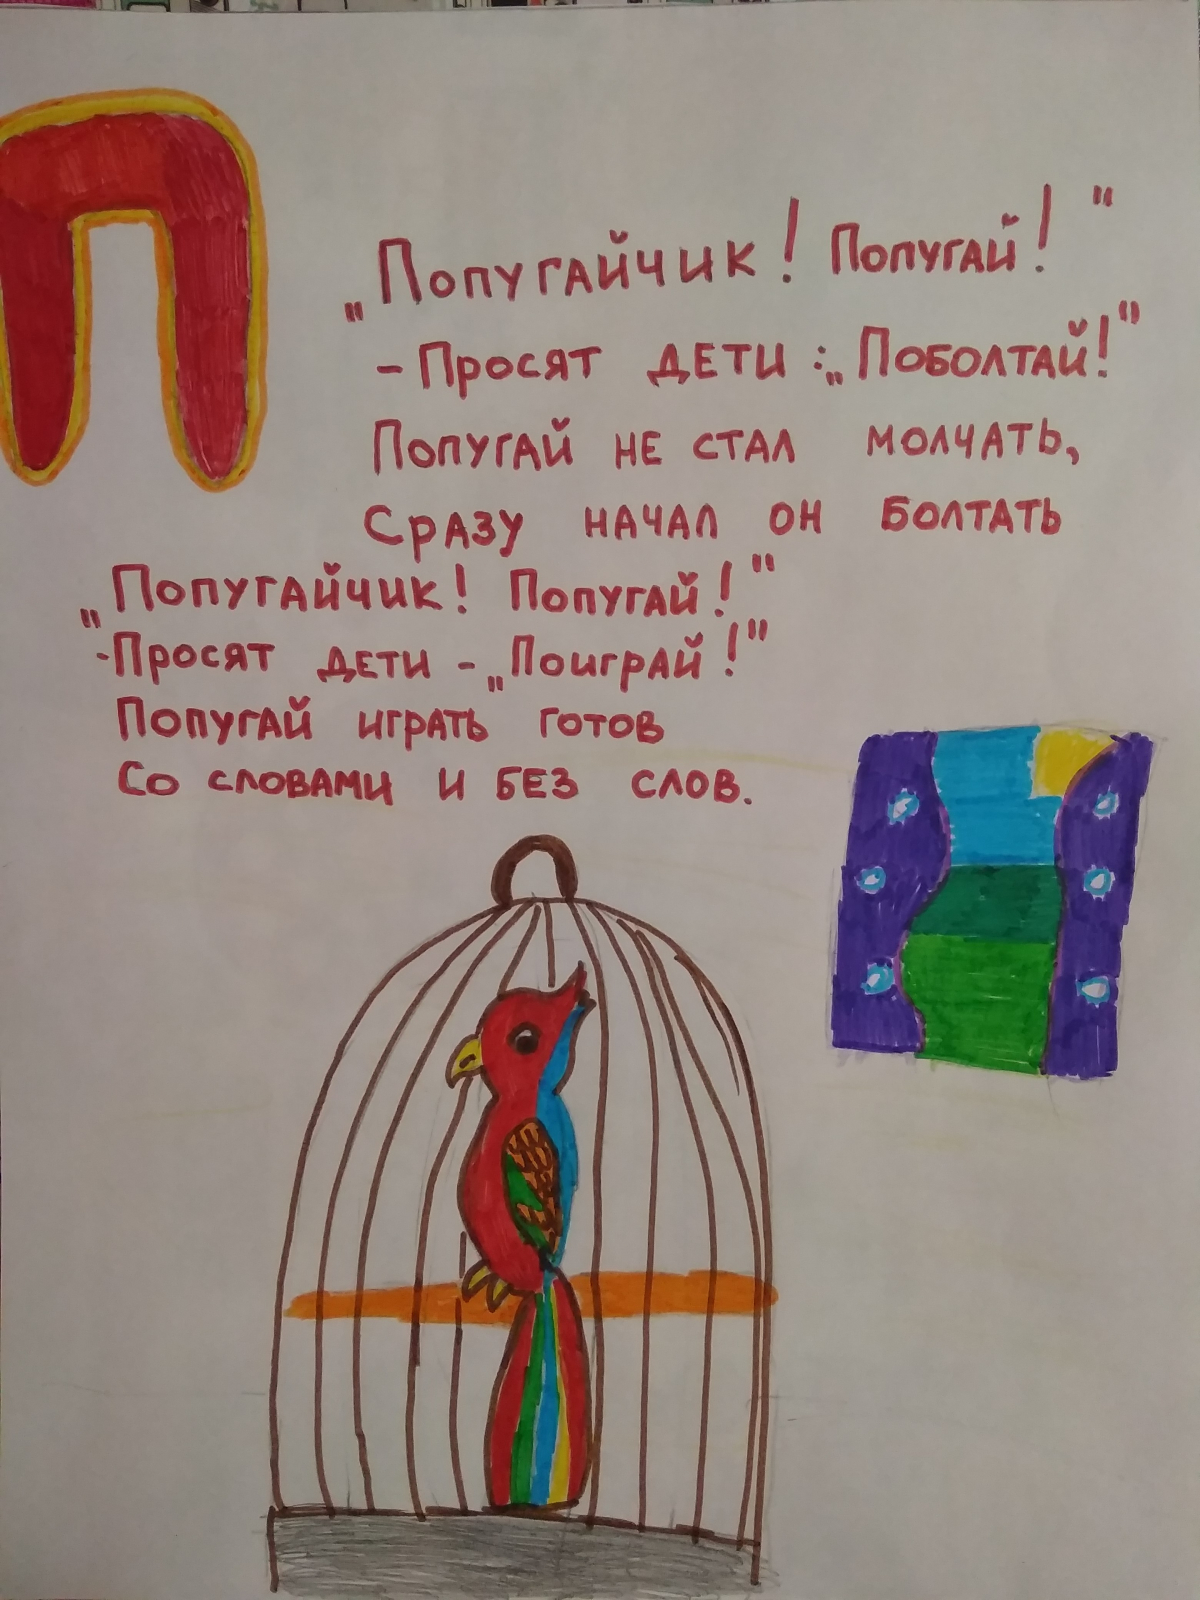 П
„Попугайчик! Попугай!"
- Просят дети :„Поболтай!"
Попугай не стал молчать,
Сразу начал он болтать
„Попугайчик! Попугай!"
-Просят дети - „Поиграй!"
Попугай играть готов
Со словами и без слов.